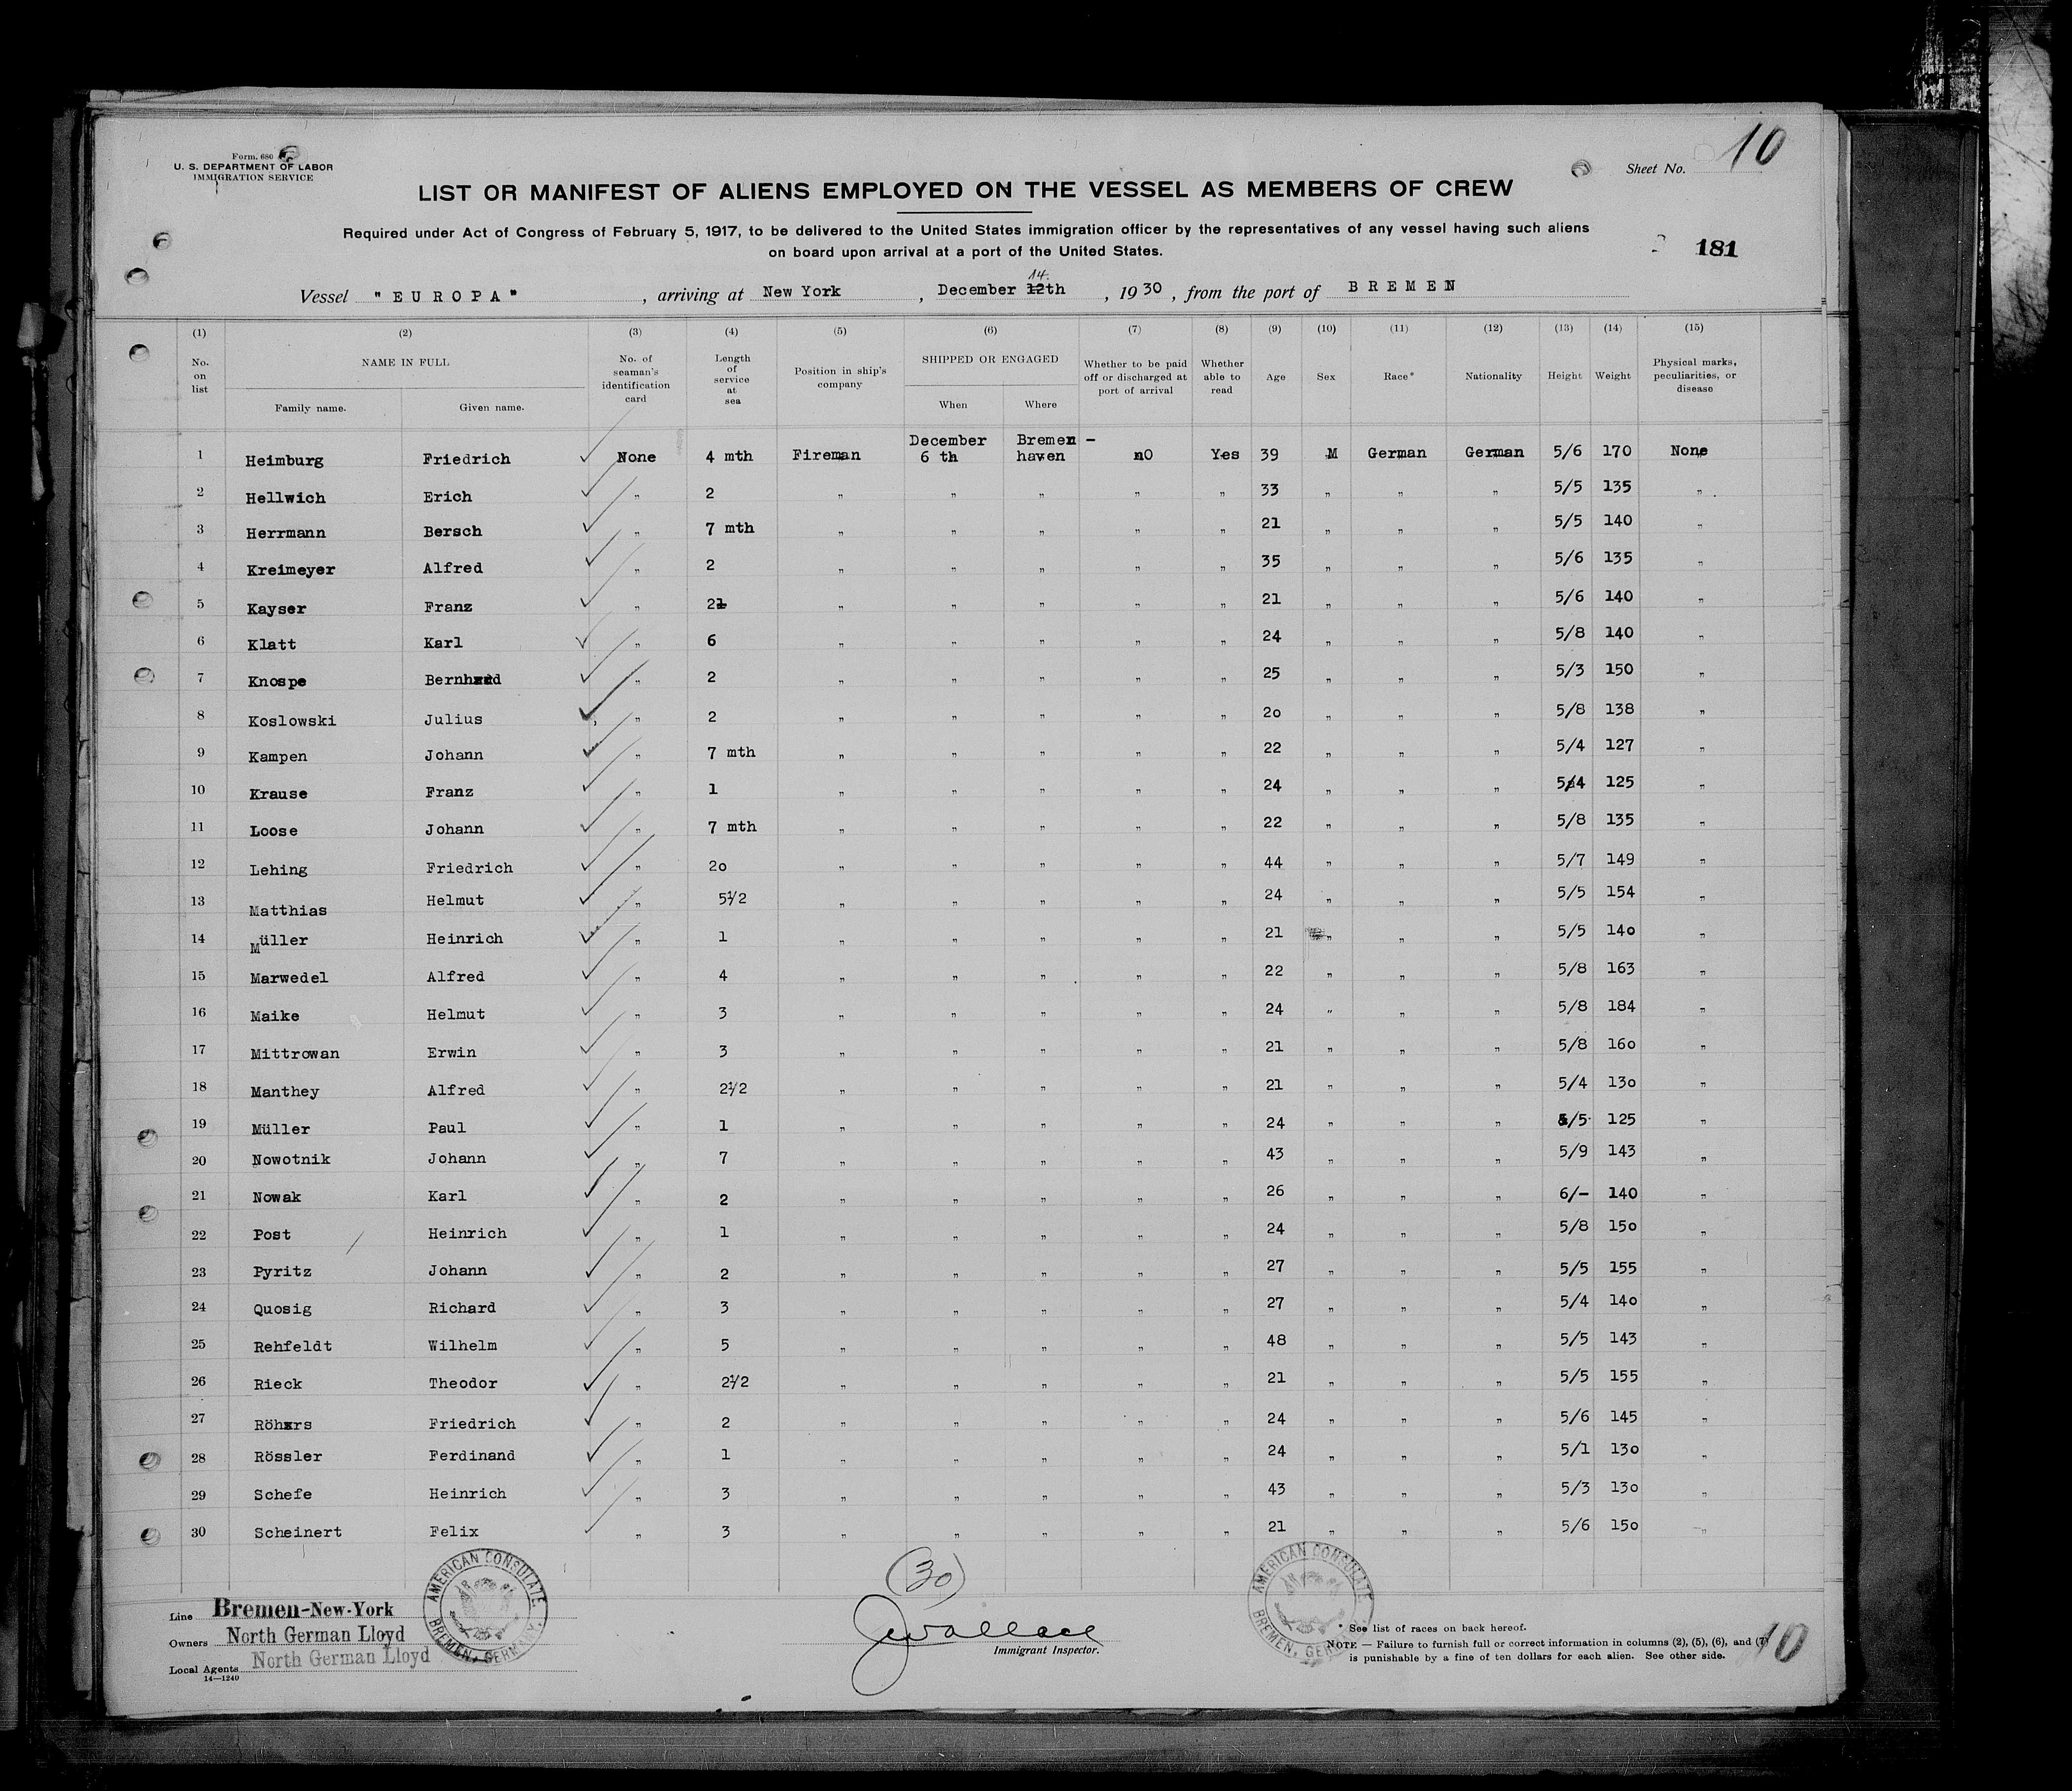 Form. 680
U. S. DEPARTMENT OF LABOR
IMMIGRATION SERVICE
Sheet No. 10
LIST OR MANIFEST OF ALIENS EMPLOYED ON THE VESSEL AS MEMBERS OF CREW
Required under Act of Congress of February 5, 1917, to be delivered to the United States immigration officer by the representatives of any vessel having such aliens
on board upon arrival at a port of the United States.
181
14.
Vessel "EUROPA", arriving at New York, December 12th, 1930, from the port of BREMEN
(1) (2) (3) (4) (5) (6) (7) (8) (9) (10) (11) (12) (13) (14) (15)
No. on list NAME IN FULL No. of seaman's identification card Length of service at sea Position in ship's company SHIPPED OR ENGAGED Whether to be paid off or discharged at port of arrival Whether able to read Age Sex Race* Nationality Height Weight Physical marks, peculiarities, or disease
Family name. Given name. When Where
1 Heimburg Friedrich None 4 mth Fireman December 6 th Bremen-haven nO Yes 39 M German German 5/6 170 None
2 Hellwich Erich " 2 " " " " " 33 " " " 5/5 135 "
3 Herrmann Bersch " 7 mth " " " " " 21 " " " 5/5 140 "
4 Kreimeyer Alfred " 2 " " " " " 35 " " " 5/6 135 "
5 Kayser Franz " 2 " " " " " 21 " " " 5/6 140 "
6 Klatt Karl " 6 " " " " " 24 " " " 5/8 140 "
7 Knospe Bernhard " 2 " " " " " 25 " " " 5/3 150 "
8 Koslowski Julius " 2 " " " " " 20 " " " 5/8 138 "
9 Kampen Johann " 7 mth " " " " " 22 " " " 5/4 127 "
10 Krause Franz " 1 " " " " " 24 " " " 5/4 125 "
11 Loose Johann " 7 mth " " " " " 22 " " " 5/8 135 "
12 Lehing Friedrich " 20 " " " " " 44 " " " 5/7 149 "
13 Matthias Helmut " 5½ " " " " " 24 " " " 5/5 154 "
14 Müller Heinrich " 1 " " " " " 21 " " " 5/5 140 "
15 Marwedel Alfred " 4 " " " " " 22 " " " 5/8 163 "
16 Maike Helmut " 3 " " " " " 24 " " " 5/8 184 "
17 Mittrowan Erwin " 3 " " " " " 21 " " " 5/8 160 "
18 Manthey Alfred " 2½ " " " " " 21 " " " 5/4 130 "
19 Müller Paul " 1 " " " " " 24 " " " 5/5 125 "
20 Nowotnik Johann " 7 " " " " " 43 " " " 5/9 143 "
21 Nowak Karl " 2 " " " " " 26 " " " 6/- 140 "
22 Post Heinrich " 1 " " " " " 24 " " " 5/8 150 "
23 Pyritz Johann " 2 " " " " " 27 " " " 5/5 155 "
24 Quosig Richard " 3 " " " " " 27 " " " 5/4 140 "
25 Rehfeldt Wilhelm " 5 " " " " " 48 " " " 5/5 143 "
26 Rieck Theodor " 2½ " " " " " 21 " " " 5/5 155 "
27 Röhrs Friedrich " 2 " " " " " 24 " " " 5/6 145 "
28 Rössler Ferdinand " 1 " " " " " 24 " " " 5/1 130 "
29 Schefe Heinrich " 3 " " " " " 43 " " " 5/3 130 "
30 Scheinert Felix " 3 " " " " " 21 " " " 5/6 150 "
(30)
AMERICAN CONSULATE BREMEN, GERMANY.
AMERICAN CONSULATE BREMEN, GERMANY
Line Bremen-New-York
Owners North German Lloyd
Local Agents North German Lloyd
14—1240
JWallace
Immigrant Inspector.
* See list of races on back hereof.
NOTE — Failure to furnish full or correct information in columns (2), (5), (6), and (7)
is punishable by a fine of ten dollars for each alien. See other side.
10